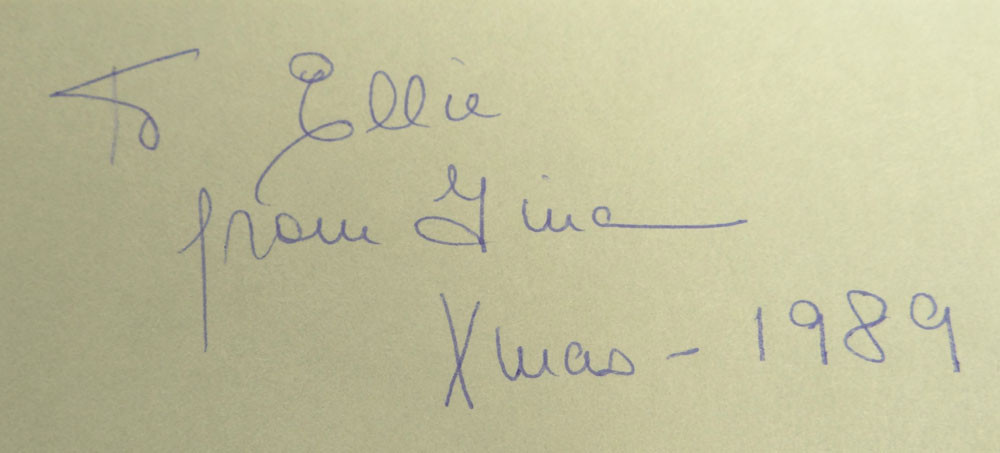 To Ellie
from Gina
Xmas - 1989